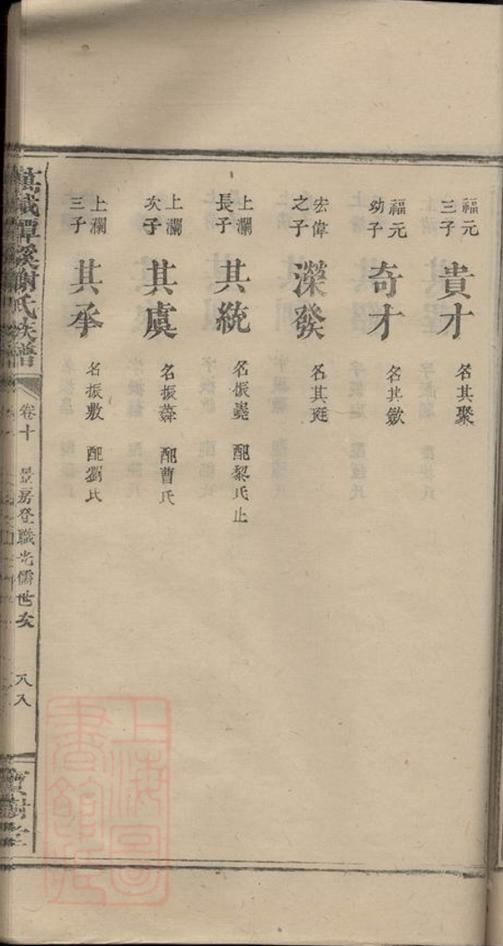 福元三子 貴才 名其聚
福元幼子 奇才 名其斂
宏偉之子 濚發 名其廷
上瀾長子 其統 名振堯 配黎氏止
上瀾次子 其虞 名振蕣 配曹氏
上瀾三子 其承 名振敷 配劉氏
萬載潭溪謝氏族譜 卷十 昱房登職光儒世友 八八 寶樹堂
上海圖書館藏